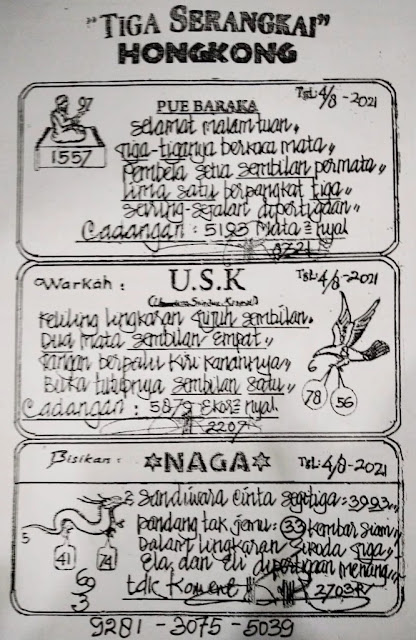 "TIGA SERANGKAI"
HONGKONG
TGL: 4/8-2021
97
1557
PUE BARAKA
Selamat malam tuan,
Tiga-tiganya berkaca mata,
Pembela setia sembilan permata,
Lima satu berpangkat tiga,
Seiring-sejalan dipertigaan,
Cadangan: 5193 Mata = nyal
8721
Warkah:
U.S.K
TGL: 4/8-2021
Keliling lingkaran tujuh sembilan.
Dua mata sembilan empat,
Jangan berpalu kiri kanannya,
Buka tutupnya sembilan satu,
Cadangan: 5879 Ekor = nyal.
2207
6
78
56
Bisikan:
☆NAGA☆
TGL: 4/8-2021
Sandiwara cinta segitiga: 3993,
pandang tak jemu: 33 kembar siam,
Dalam lingkaran tiga,
Ela dan Eli dipertigaan menang,
tdk Koment
2703
5
41
74
9281-3075-5039